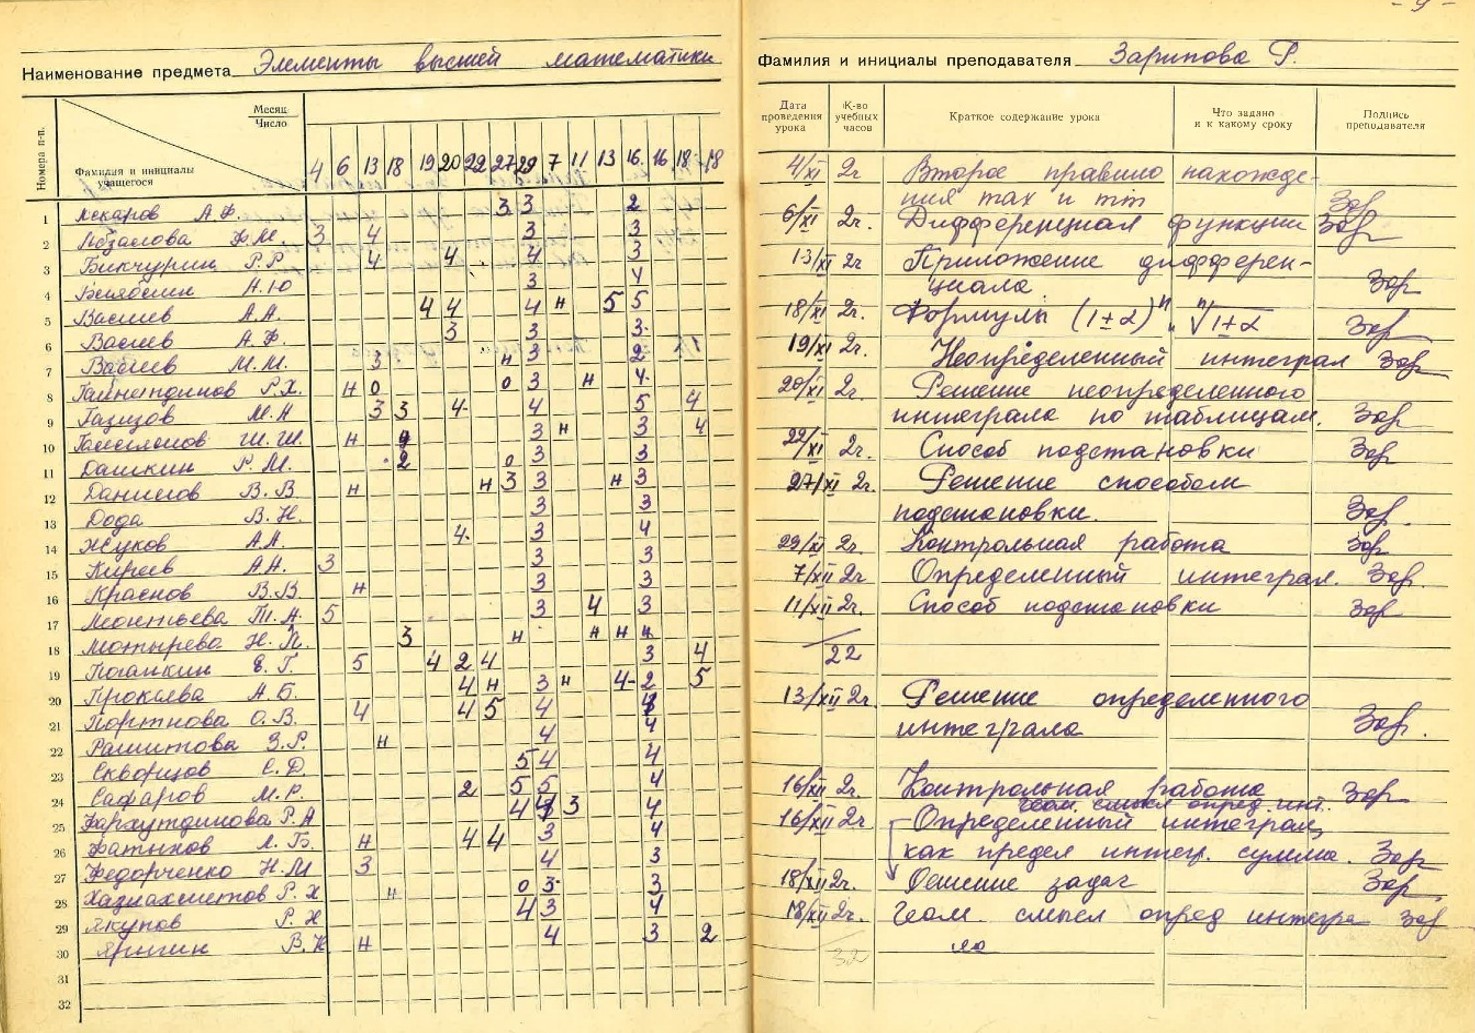 - 9 -
Наименование предмета Элементы высшей математики
Номера п-п.
Месяц
Число
Фамилия и инициалы
учащегося
4 6 13 18 19 20 22 27 29 7 11 13 16 16 18 18
1 А.Ф. 3 3 2
2 Ф.М. 3 4 3 3
3 Бикчурин Р.Р 4 4 4 3
4 А.Ю 3 4
5 Васиев А.А. 4 4 4 н 5 5
6 Васиев А.Ф. 3 3 3
7 М.М. 3 н 3 2
8 Гайнетдинов Р.Х. н 0 0 3 н 4
9 Газизов М.Н 3 3 4 4 5 4
10 Ш.Ш. н 3 н 3 4
11 Дашкин Р.М. 2 0 3 3
12 Данилов В.В н н 3 3 н 3
13 Дода В.Н. 3 3
14 Жуков А.А. 4 3 4
15 Киреев А.Н. 3 3 3
16 Краснов В.В н 3 3
17 Леонтьева Т.А. 5 3 4 3
18 Мотырева Н.П. 3 н н н н
19 Поганкин Е.Г. 5 4 2 4 3 4
20 Прокаева А.Б. 4 н 3 н 4 2 5
21 Портнова О.В. 4 4 5 4
22 Рашитова З.Р. н 4 4
23 Скворцов С.Д. 5 4 4
24 Сафаров М.Р. 2 5 5 4
25 Фархутдинова Р.А 4 3 4
26 Фатыхов Л.Б. н 4 4 3 4
27 Федорченко Н.М 3 4 3
28 Хазиахметов Р.Х н 0 3 3
29 Якупов Р.Х 4 3 4
30 Яригин В.Н н 4 3 2
31
32
Фамилия и инициалы преподавателя Зарипова Р.
Дата проведения урока
К-во учебных часов
Краткое содержание урока
Что задано и к какому сроку
Подпись преподавателя
4/XI 2ч Второе правило нахожде-
ния max и min Зар
6/XI 2ч. Дифференциал функции Зар
13/XI 2ч Приложение дифферен-
циала Зар
18/XI 2ч. Формулы (1±α)ⁿ, ⁿ√1±α Зар
19/XI 2ч. Неопределенный интеграл Зар
20/XI 2ч. Решение неопределенного
интеграла по таблицам. Зар
22/XI 2ч. Способ подстановки Зар
27/XI 2ч. Решение способом
подстановки. Зар.
29/XI 2ч. Контрольная работа Зар
7/XII 2ч. Определенный интеграл. Зар
11/XII 2ч. Способ подстановки Зар
22
13/XII 2ч. Решение определенного
интеграла Зар.
16/XII 2ч. Контрольная работа Зар
геом. смысл опред. инт.
16/XII 2ч Определенный интеграл,
как предел интегр. сумма. Зар
18/XII 2ч. Решение задач Зар.
18/XII 2ч. Геом. смысл опред интегра Зар
ла
32